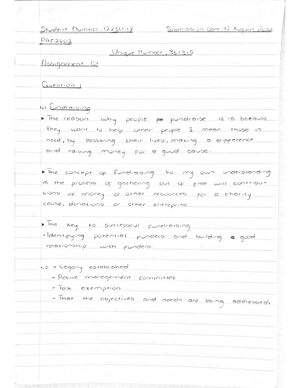 Student Number
Submission Date 12 August
Unique Number:
Assignment 01
Question 1
1.1 Fundraising
▸ The reason why people fundraise is is because
they want to help other people I mean those in
need, by bettering their lives, making a difference
and raising money for a good cause.
▸ The concept of fundraising to my own understanding
is the process of gathering out of free will contribu-
tions of money or other resources for a charity
cause, donations or other enterprise.
▸ The key to successful fundraising
- Identifying potential funders and building a good
relationship with funders.
1.2 - Legacy established
- Active management committee
- Tax exemption
- That the objectives and needs are being addressed